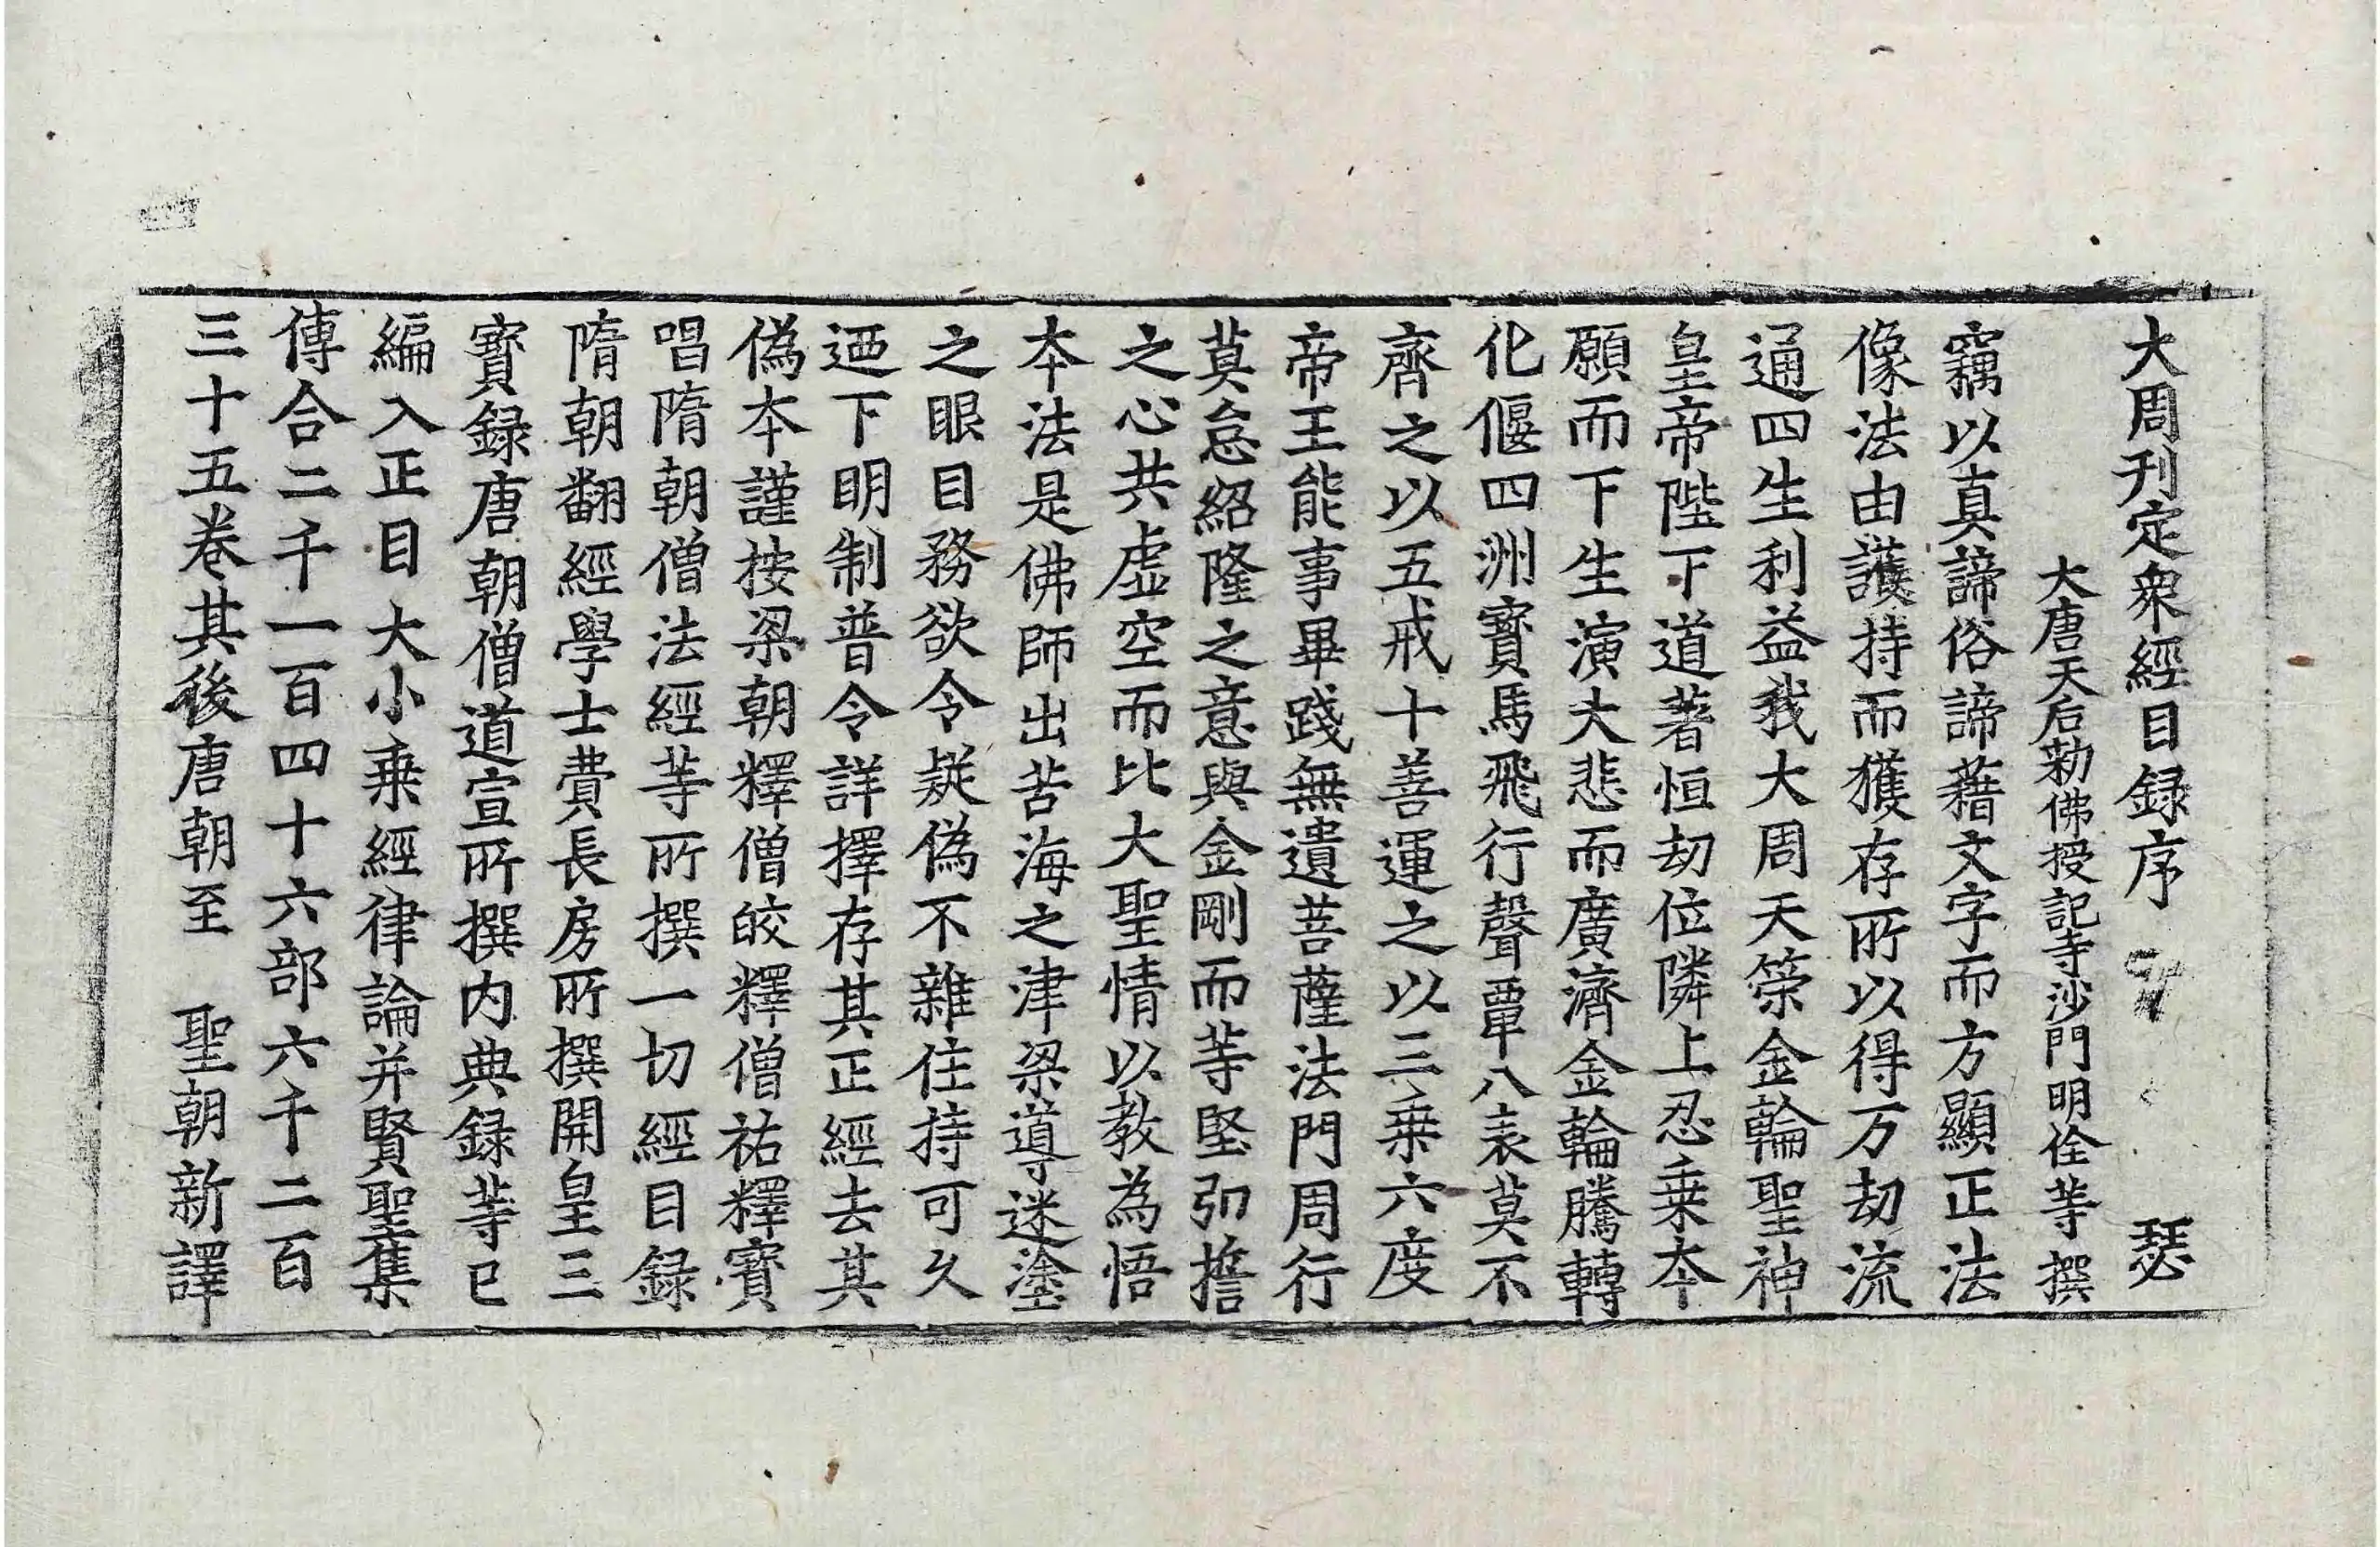 大周刊定衆經目録序 瑟
大唐天后勑佛授記寺沙門明佺等撰
竊以真諦俗諦藉文字而方顯正法
像法由護持而獲存所以得万劫流
通四生利益我大周天策金輪聖神
皇帝陛下道著恒劫位隣上忍乗本
願而下生演大悲而廣濟金輪騰轉
化偃四洲寳馬飛行聲覃八表莫不
齊之以五戒十善運之以三乗六度
帝王能事畢踐無遺菩薩法門周行
莫怠紹隆之意與金剛而等堅弘擔
之心共虚空而比大聖情以教為悟
本法是佛師出苦海之津梁導迷塗
之眼目務欲令疑偽不雜住持可久
迺下明制普令詳擇存其正經去其
偽本謹按梁朝釋僧皎釋僧祐釋寳
唱隋朝僧法經等所撰一切經目録
隋朝翻經學士費長房所撰開皇三
寳録唐朝僧道宣所撰内典録等已
編入正目大小乗經律論并賢聖集
傳合二千一百四十六部六千二百
三十五卷其後唐朝至 聖朝新譯